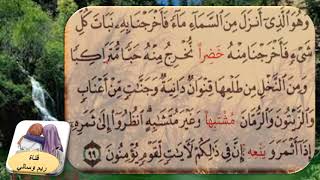 وَهُوَ الَّذِي أَنزَلَ مِنَ السَّمَاءِ مَاءً فَأَخْرَجْنَا بِهِ نَبَاتَ كُلِّ
شَيْءٍ فَأَخْرَجْنَا مِنْهُ خَضِرًا نُّخْرِجُ مِنْهُ حَبًّا مُّتَرَاكِبًا
وَمِنَ النَّخْلِ مِن طَلْعِهَا قِنْوَانٌ دَانِيَةٌ وَجَنَّاتٍ مِّنْ أَعْنَابٍ
وَالزَّيْتُونَ وَالرُّمَّانَ مُشْتَبِهًا وَغَيْرَ مُتَشَابِهٍ انظُرُوا إِلَىٰ ثَمَرِهِ
إِذَا أَثْمَرَ وَيَنْعِهِ إِنَّ فِي ذَٰلِكُمْ لَآيَاتٍ لِّقَوْمٍ يُؤْمِنُونَ ٩٩
قناة
ريم وسالي